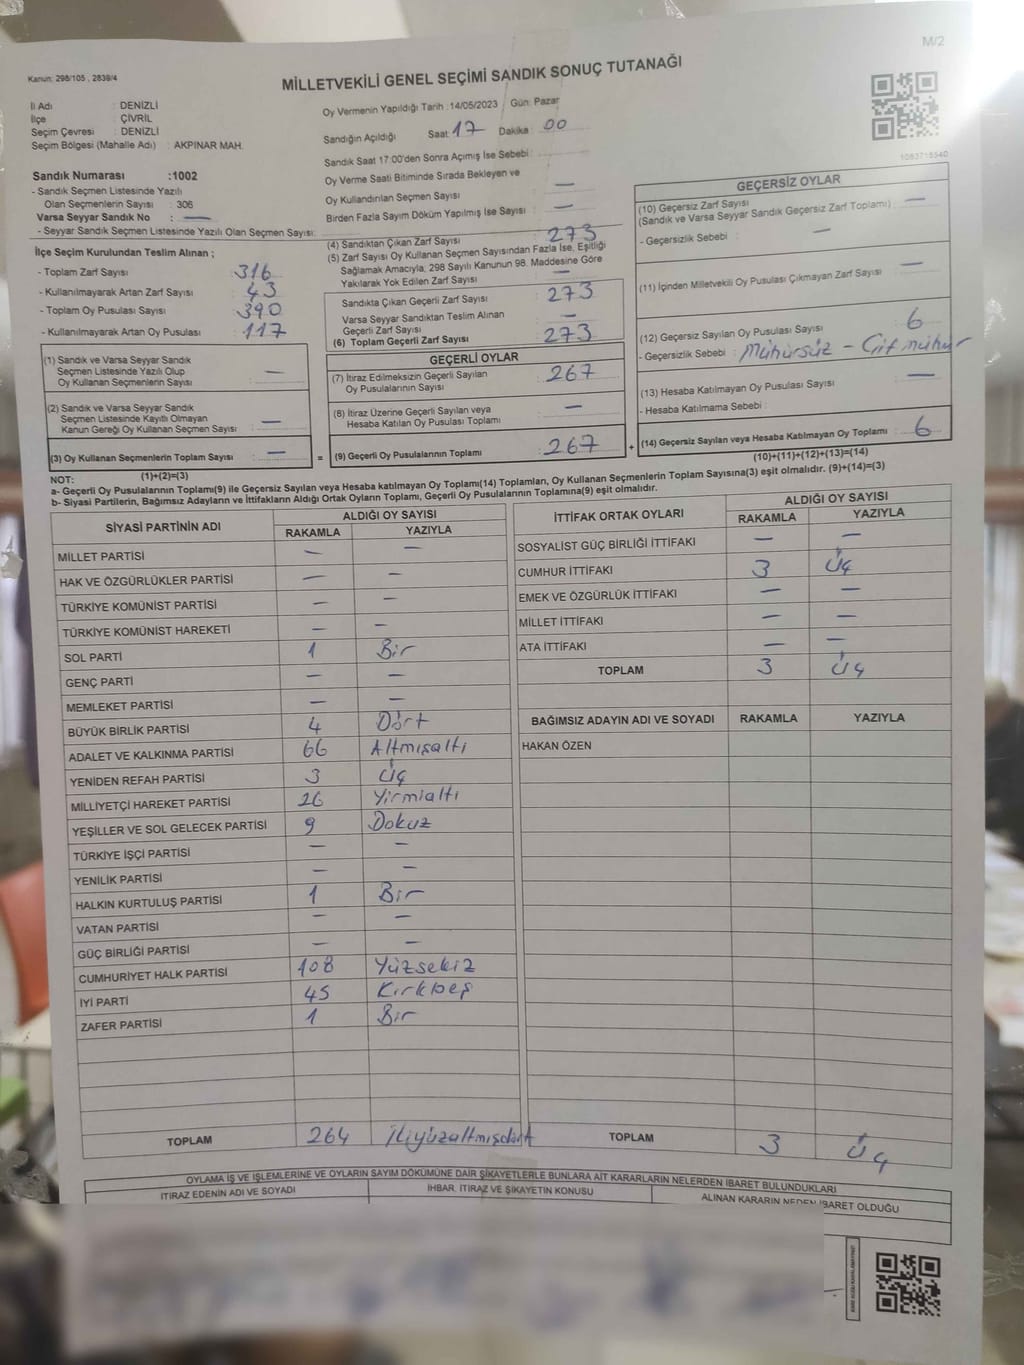 M/2
Kanun: 298/105 , 2839/4
MİLLETVEKİLİ GENEL SEÇİMİ SANDIK SONUÇ TUTANAĞI
1083715540
İl Adı : DENİZLİ
İlçe : ÇİVRİL
Seçim Çevresi : DENİZLİ
Seçim Bölgesi (Mahalle Adı) : AKPINAR MAH.
Sandık Numarası :1002
- Sandık Seçmen Listesinde Yazılı
Olan Seçmenlerin Sayısı : 306
Varsa Seyyar Sandık No : —
- Seyyar Sandık Seçmen Listesinde Yazılı Olan Seçmen Sayısı:
İlçe Seçim Kurulundan Teslim Alınan ;
- Toplam Zarf Sayısı : 316
- Kullanılmayarak Artan Zarf Sayısı : 43
- Toplam Oy Pusulası Sayısı : 390
- Kullanılmayarak Artan Oy Pusulası : 117
(1) Sandık ve Varsa Seyyar Sandık
Seçmen Listesinde Yazılı Olup
Oy Kullanan Seçmenlerin Sayısı : —
(2) Sandık ve Varsa Seyyar Sandık
Seçmen Listesinde Kayıtlı Olmayan
Kanun Gereği Oy Kullanan Seçmen Sayısı : —
(3) Oy Kullanan Seçmenlerin Toplam Sayısı : —
(1)+(2)=(3)
Oy Vermenin Yapıldığı Tarih :14/05/2023 Gün: Pazar
Sandığın Açıldığı Saat 17 Dakika : 00
Sandık Saat 17:00'den Sonra Açımış İse Sebebi :
Oy Verme Saati Bitiminde Sırada Bekleyen ve
Oy Kullandırılan Seçmen Sayısı : —
Birden Fazla Sayım Döküm Yapılmış İse Sayısı : —
(4) Sandıktan Çıkan Zarf Sayısı : 273
(5) Zarf Sayısı Oy Kullanan Seçmen Sayısından Fazla İse, Eşitliği
Sağlamak Amacıyla, 298 Sayılı Kanunun 98. Maddesine Göre
Yakılarak Yok Edilen Zarf Sayısı : —
Sandıkta Çıkan Geçerli Zarf Sayısı : 273
Varsa Seyyar Sandıktan Teslim Alınan
Geçerli Zarf Sayısı : —
(6) Toplam Geçerli Zarf Sayısı : 273
GEÇERLİ OYLAR
(7) İtiraz Edilmeksizin Geçerli Sayılan
Oy Pusulalarının Sayısı : 267
(8) İtiraz Üzerine Geçerli Sayılan veya
Hesaba Katılan Oy Pusulası Toplamı : —
= (9) Geçerli Oy Pusulalarının Toplamı : 267 +
GEÇERSİZ OYLAR
(10) Geçersiz Zarf Sayısı : —
(Sandık ve Varsa Seyyar Sandık Geçersiz Zarf Toplamı)
- Geçersizlik Sebebi : —
(11) İçinden Milletvekili Oy Pusulası Çıkmayan Zarf Sayısı : —
(12) Geçersiz Sayılan Oy Pusulası Sayısı : 6
- Geçersizlik Sebebi : Mühürsüz - Çift mühür
(13) Hesaba Katılmayan Oy Pusulası Sayısı : —
- Hesaba Katılmama Sebebi :
(14) Geçersiz Sayılan veya Hesaba Katılmayan Oy Toplamı : 6
(10)+(11)+(12)+(13)=(14)
NOT:
a- Geçerli Oy Pusulalarının Toplamı(9) ile Geçersiz Sayılan veya Hesaba katılmayan Oy Toplamı(14) Toplamları, Oy Kullanan Seçmenlerin Toplam Sayısına(3) eşit olmalıdır. (9)+(14)=(3)
b- Siyasi Partilerin, Bağımsız Adayların ve İttifakların Aldığı Ortak Oyların Toplamı, Geçerli Oy Pusulalarının Toplamına(9) eşit olmalıdır.
SİYASİ PARTİNİN ADI ALDIĞI OY SAYISI
RAKAMLA YAZIYLA
MİLLET PARTİSİ — —
HAK VE ÖZGÜRLÜKLER PARTİSİ — —
TÜRKİYE KOMÜNİST PARTİSİ — —
TÜRKİYE KOMÜNİST HAREKETİ — —
SOL PARTİ 1 Bir
GENÇ PARTİ — —
MEMLEKET PARTİSİ — —
BÜYÜK BİRLİK PARTİSİ 4 Dört
ADALET VE KALKINMA PARTİSİ 66 Altmışaltı
YENİDEN REFAH PARTİSİ 3 Üç
MİLLİYETÇİ HAREKET PARTİSİ 26 Yirmialtı
YEŞİLLER VE SOL GELECEK PARTİSİ 9 Dokuz
TÜRKİYE İŞÇİ PARTİSİ — —
YENİLİK PARTİSİ — —
HALKIN KURTULUŞ PARTİSİ 1 Bir
VATAN PARTİSİ — —
GÜÇ BİRLİĞİ PARTİSİ — —
CUMHURİYET HALK PARTİSİ 108 Yüzsekiz
İYİ PARTİ 45 Kırkbeş
ZAFER PARTİSİ 1 Bir
TOPLAM 264 İkiyüzaltmışdört
İTTİFAK ORTAK OYLARI ALDIĞI OY SAYISI
RAKAMLA YAZIYLA
SOSYALİST GÜÇ BİRLİĞİ İTTİFAKI — —
CUMHUR İTTİFAKI 3 Üç
EMEK VE ÖZGÜRLÜK İTTİFAKI — —
MİLLET İTTİFAKI — —
ATA İTTİFAKI — —
TOPLAM 3 Üç
BAĞIMSIZ ADAYIN ADI VE SOYADI RAKAMLA YAZIYLA
HAKAN ÖZEN
TOPLAM 3 Üç
OYLAMA İŞ VE İŞLEMLERİNE VE OYLARIN SAYIM DÖKÜMÜNE DAİR ŞİKAYETLERLE BUNLARA AİT KARARLARIN NELERDEN İBARET BULUNDUKLARI
İTİRAZ EDENİN ADI VE SOYADI İHBAR, İTİRAZ VE ŞİKAYETİN KONUSU ALINAN KARARIN NEDEN İBARET OLDUĞU